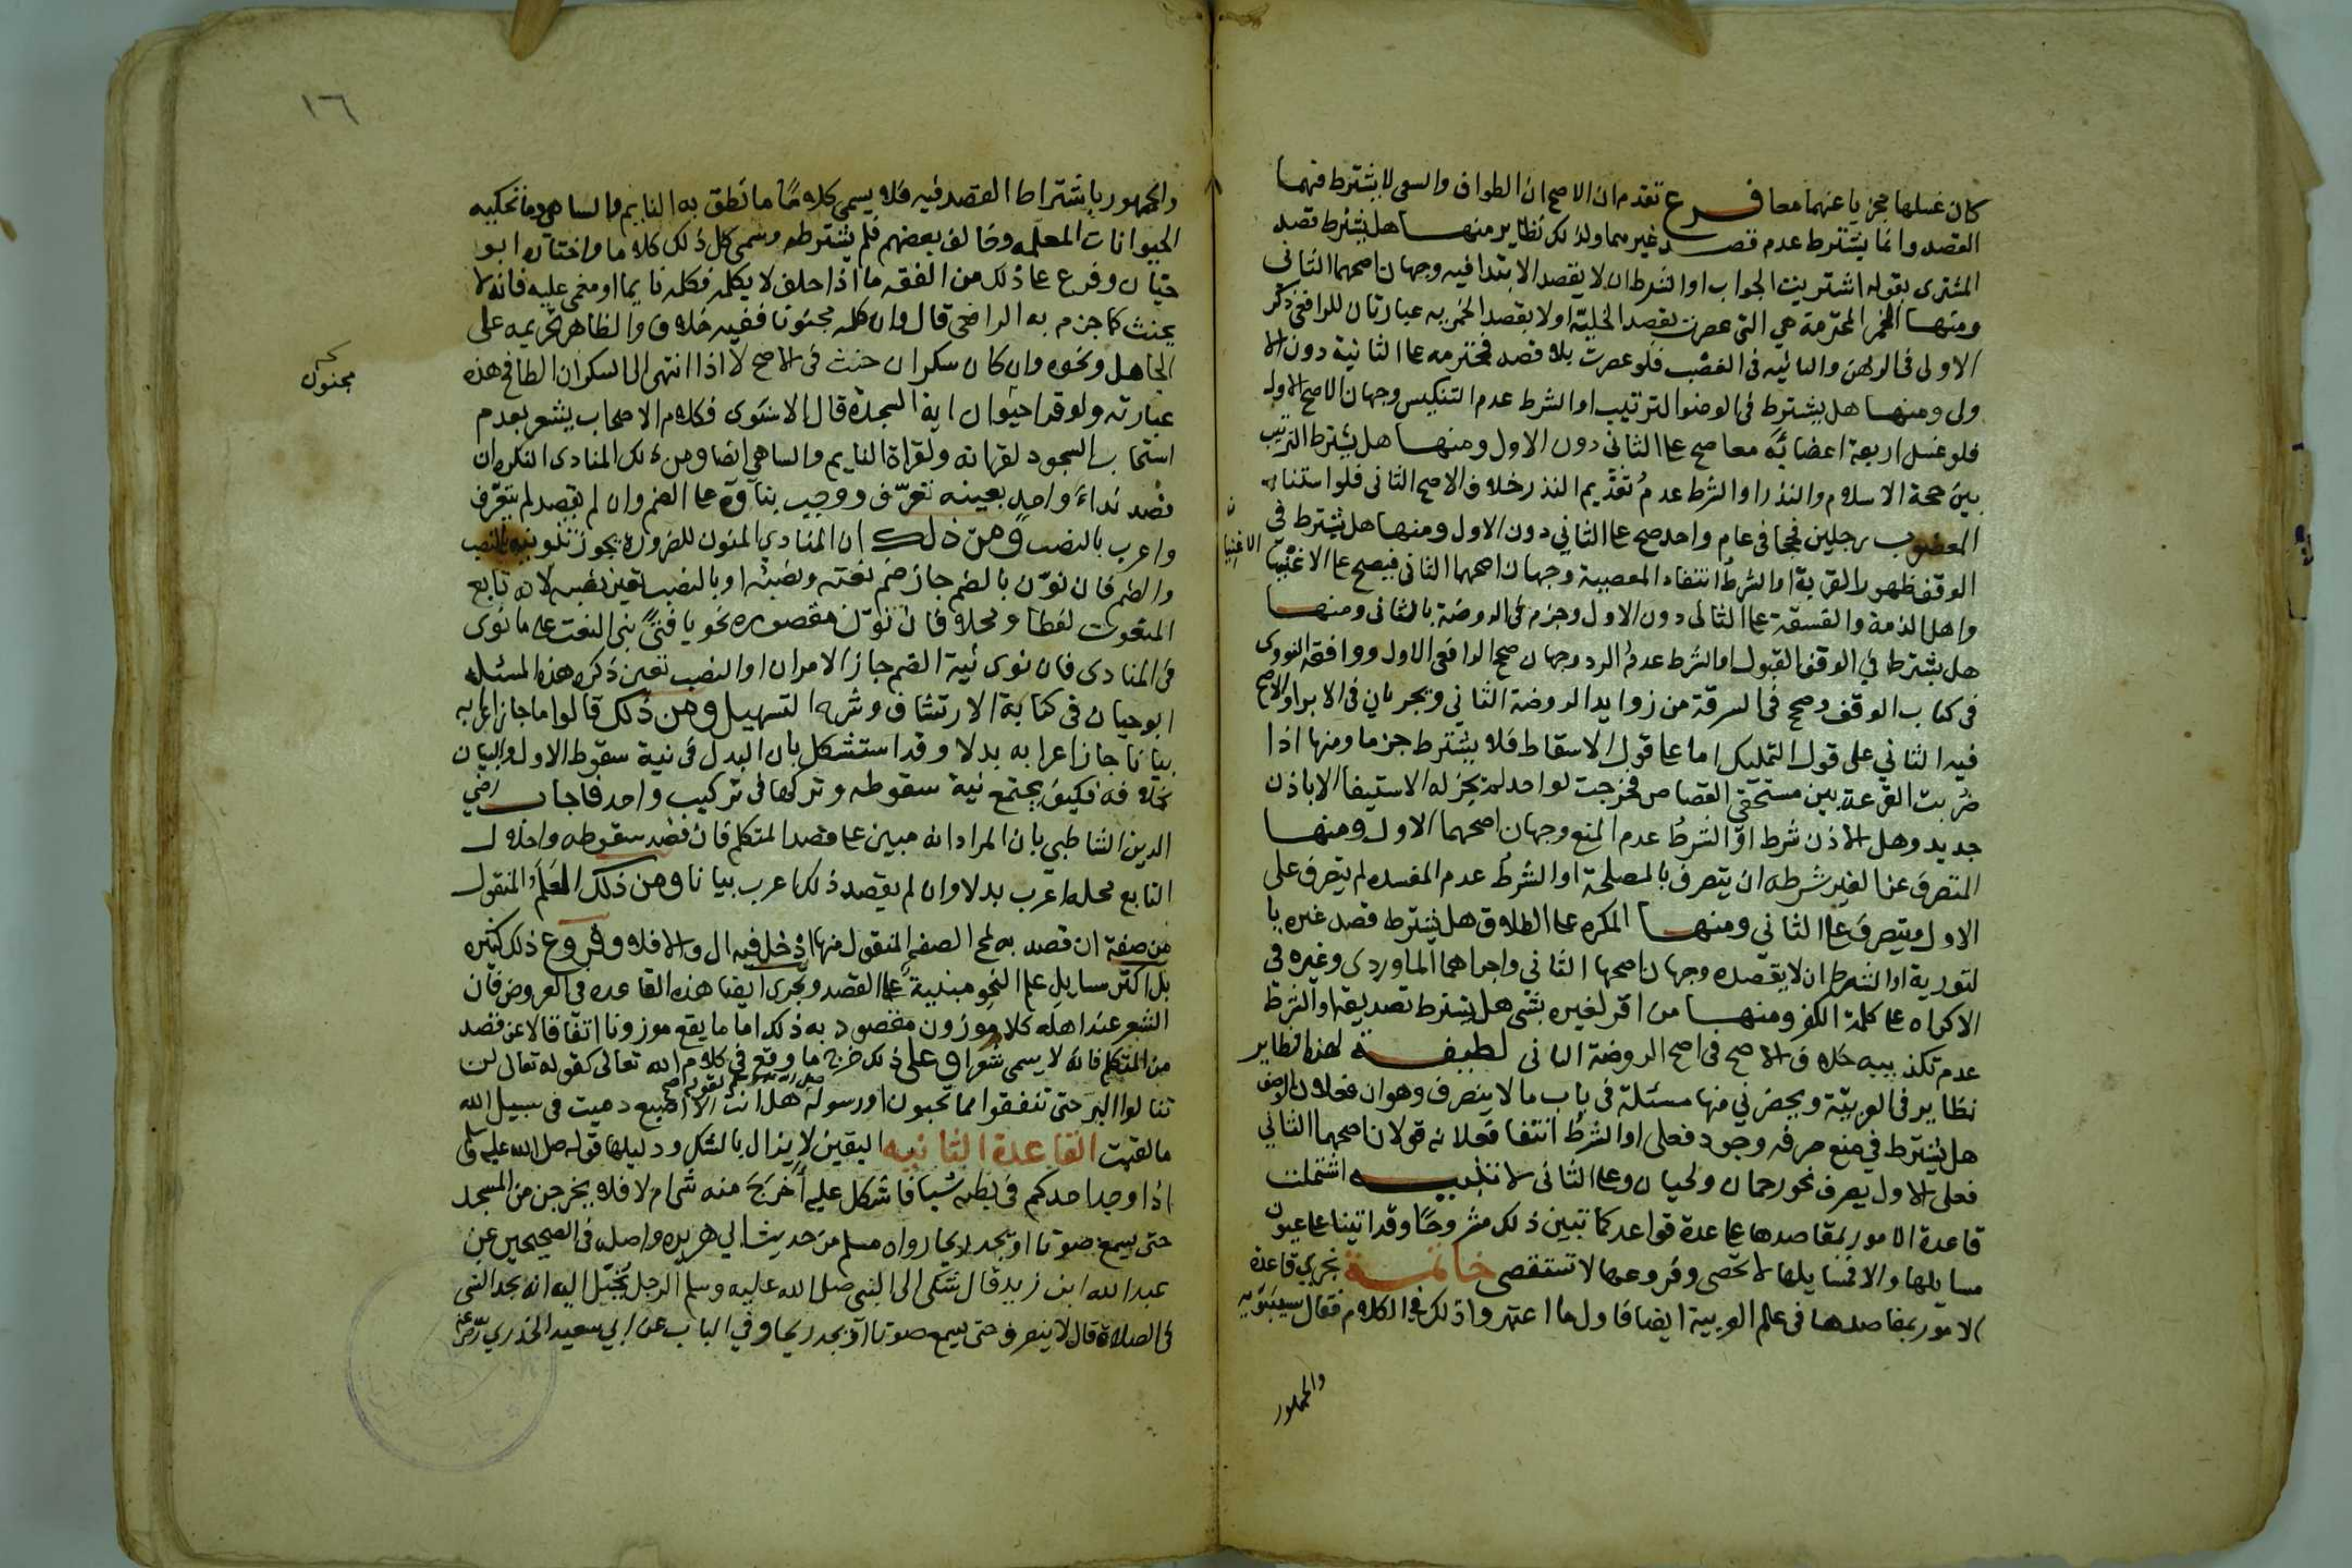 كان غسلها مجزيا عنهما معا فرع تقدم ان الاصح ان الطواف والسعى لا يشترط فيهما
القصد وانما يشترط عدم قصد غيرهما ولذلك نظاير منها هل يشترط قصد
المشترى بقوله اشتريت الجواب او الشرط ان لا يقصد الابتدا فيه وجهان اصحهما الثانى
ومنها الخمر المحترمة هي التى عصرت بقصد الخلية او لا بقصد الخمرية عبارتان للرافعى ذكر
الاولى فى الرهن والثانيه فى الغصب فلو عصرت بلا قصد فمحترمه على الثانية دون الا
ولى ومنها هل يشترط فى الوضوا الترتيب او الشرط عدم التنكيس وجهان الاصح الاول
فلو غسل اربعة اعضائه معا صح على الثانى دون الاول ومنها هل يشترط الترتيب
بين حجة الاسلام والنذر او الشرط عدم تقديم النذر خلاف الاصح الثانى فلو استناب
المعضوب رجلين فحجا فى عام واحد صح على الثاني دون الاول ومنها هل يشترط في
الوقف ظهور القربة او الشرط انتفاء المعصية وجهان اصحهما الثانى فيصح على الاغنيا
الاغنيا
واهل الذمة والفسقة على الثانى دون الاول وجزم فى الروضة بالثانى ومنها
هل يشترط في الوقف القبول او الشرط عدم الرد وجهان صحح الرافعى الاول ووافقه النووى
فى كتاب الوقف وصحح فى السرقة من زوايد الروضة الثاني ويجريان فى الابرا والاصح
فيه الثاني على قول التمليك اما على قول الاسقاط فلا يشترط جزما ومنها اذا
ضربت القرعة بين مستحقى القصاص فخرجت لواحد لم يجز له الاستيفا الا باذن
جديد وهل الاذن شرط او الشرط عدم المنع وجهان اصحهما الاول ومنها
المتصرف عن الغير شرطه ان يتصرف بالمصلحة او الشرط عدم المفسده لم يتصرف على
الاول ويتصرف على الثاني ومنها المكره على الطلاق هل يشترط قصد غيره با
لتورية او الشرط ان لا يقصده وجهان اصحها الثانى واجراهما الماوردى وغيره فى
الاكراه على كلمة الكفر ومنها من اقر لغيره بشى هل يشترط تصديقه او الشرط
عدم تكذيبيه خلاف الاصح فى اصح الروضة الثانى لطيفة لهذا نظاير
نظاير فى العربيّة ويحضرني منها مسئلة فى باب ما لا ينصرف وهو ان فعلان الوصف
هل يشترط في منع صرفه وجود فعلى او الشرط انتفا فعلانه قولان اصحهما الثاني
فعلى الاول يصرف نحو رحمان ولحيان وعلى الثانى لا تنبيه اشتملت
قاعدة الامور بمقاصدها على عدة قواعد كما تبين ذلك مشروحًا وقد اتينا على عيون
مسايلها والا فمسايلها لا تحصى وفروعها لا تستقصى خاتمة تجري قاعدة
الامور بمقاصدها فى علم العربية ايضا فاول ما اعتبروا ذلك في الكلام فقال سيبَوَيه
والجمهور
١٦
والجمهور باشتراط القصد فيه فلا يسمى كلامًا ما نطق به النايم والساهى وما تحكيه
الحيوانات المعلمه وخالف بعضهم فلم يشترطه وسمى كل ذلك كلاما واختاره ابو
حيّان وفرع على ذلك من الفقه ما اذا حلف لا يكلمه فكلمه نايما او مغمى عليه فانه لا
يحنث كما جزم به الرافعى قال وان كلمه مجنونا ففيه خلاف والظاهر تخريجه على
الجاهل ونحوه وان كان سكران حنث فى الاصح لا اذا انتهى الى السكران الطافح هذه
مجنون
عبارته ولو قرا حيوان اية السجدة قال الاسنوى فكلام الاصحاب يشعر بعدم
استحباب السجود لقراته ولقراة النايم والساهى ايضا ومن ذلك المنادى النكره ان
قصد نداءَ واحدٍ بعينه تعرّف ووجب بناوه على الضم وان لم يقصد لم يتعرف
واعرب بالنصب ومن ذلك ان المنادي المنون للضروره يجوز تنوينه بالنصب
والضم فان نوّن بالضم جاز ضم نعته ونصبه او بالنصب تعين نصبه لانه تابع
المنعوت لفظا ومحلا فان نوّن مقصوره نحو يا فتىً بنى النعت على ما نوى
فى المنادى فان نوى نية الضم جاز الامران او النصب تعين ذكره هذه المسئله
ابو حيان فى كتابة الارتشاف وشرح التسهيل ومن ذلك قالوا ما جاز اعرابه
بيانا جاز اعرابه بدلا وقد استشكل بان البدل فى نية سقوط الاول والبيان
بخلافه فكيف يجتمع نية سقوطه وتركها فى تركيب واحد فاجاب رضي
الدين الشاطبي بان المراد انه مبين على قصد المتكلم فان قصد سقوطه واحلال
التابع محله اعرب بدلا وان لم يقصد ذلك اعرب بيانا ومن ذلك العَلَم المنقول
من صفة ان قصد به لمح الصفه المنقول منها ادخل فيه ال والا فلا وفروع ذلك كثيره
بل اكثر مسايل علم النحو مبنية على القصد وتجرى ايضا هذه القاعده فى العروض فان
الشعر عند اهله كلام موزون مقصود به ذلك اما ما يقع موزونا اتفاقا لا عن قصد
من المتكلم فانه لا يسمى شعرا وعلى ذلك خرج ما وقع فى كلام الله تعالى كقوله تعالى لن
تنالوا البر حتى تنفقوا مما تحبون او رسوله هل انت الا اصبع دميت فى سبيل الله
مالقيت القاعدة الثانيه اليقين لا يزال بالشك ودليلها قوله صلى الله عليه وسلم
اذا وجد احدكم فى بطنه شيا فاشكل عليه أخرج منه شى ام لا فلا يخرجن من المسجد
حتى يسمع صوتا او يجد ريحا رواه مسلم من حديث ابي هريره واصله فى الصحيحين عن
عبد الله ابن زيد قال شكى الى النبى صلى الله عليه وسلم الرجل يخيّل اليه انه يجد الشى
فى الصلاة قال لا ينصرف حتى يسمع صوتا او يجد ريحا وفي الباب عن ابي سعيد الخدري